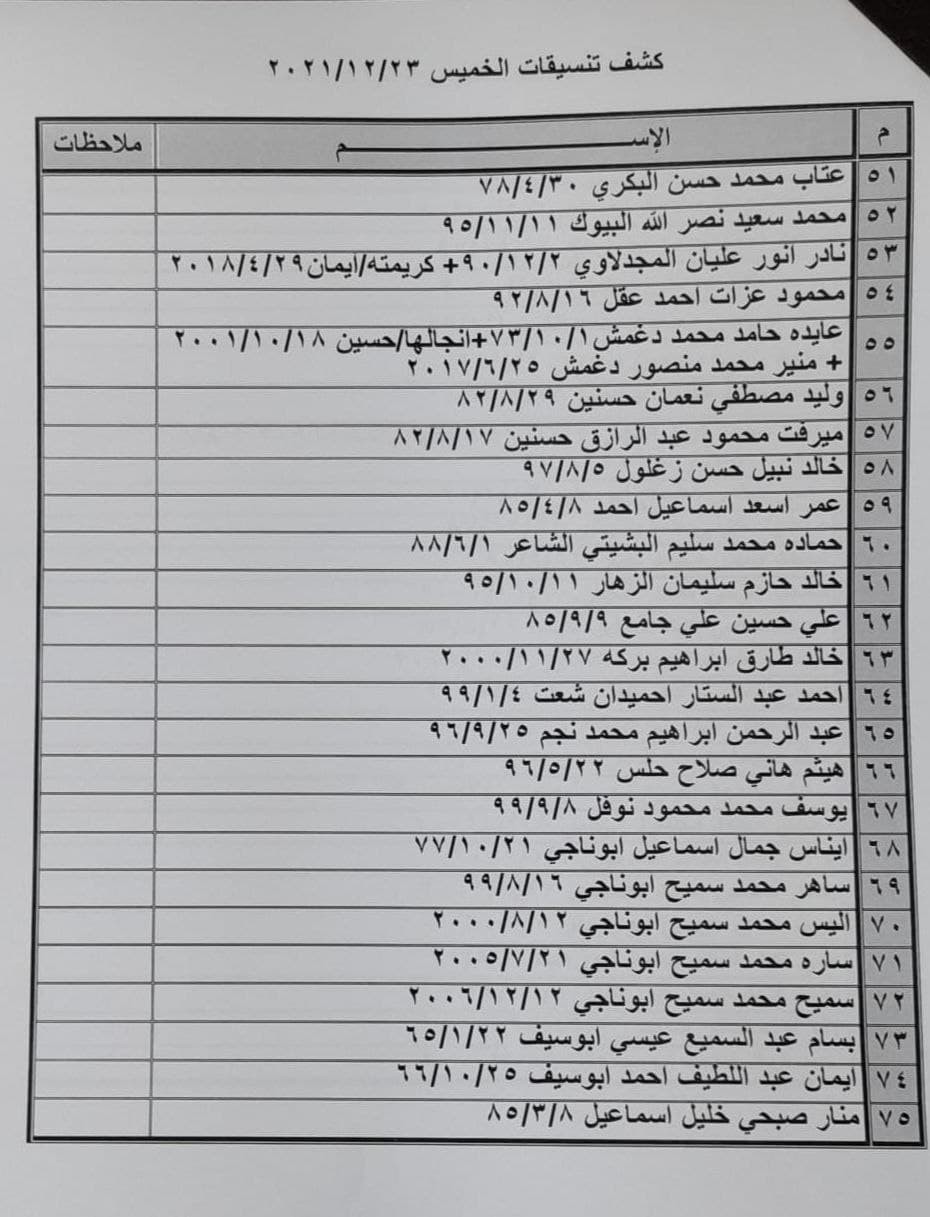 كشف تنسيقات الخميس ٢٠٢١/١٢/٢٣
م الإســـــم ملاحظات
٥١ عتاب محمد حسن البكري ٧٨/٤/٣٠
٥٢ محمد سعيد نصر الله البيوك ٩٥/١١/١١
٥٣ نادر انور عليان المجدلاوي ٩٠/١٢/٢+ كريمته/ايمان٢٠١٨/٤/٢٩
٥٤ محمود عزات احمد عقل ٩٢/٨/١٦
٥٥ عايده حامد محمد دغمش٧٣/١٠/١+انجالها/حسين ٢٠٠١/١٠/١٨
+ منير محمد منصور دغمش ٢٠١٧/٦/٢٥
٥٦ وليد مصطفي نعمان حسنين ٨٢/٨/٢٩
٥٧ ميرفت محمود عبد الرازق حسنين ٨٢/٨/١٧
٥٨ خالد نبيل حسن زغلول ٩٧/٨/٥
٥٩ عمر اسعد اسماعيل احمد ٨٥/٤/٨
٦٠ حماده محمد سليم البشيتي الشاعر ٨٨/٦/١
٦١ خالد حازم سليمان الزهار ٩٥/١٠/١١
٦٢ علي حسين علي جامع ٨٥/٩/٩
٦٣ خالد طارق ابراهيم بركه ٢٠٠٠/١١/٢٧
٦٤ احمد عبد الستار احميدان شعت ٩٩/١/٤
٦٥ عبد الرحمن ابراهيم محمد نجم ٩٦/٩/٢٥
٦٦ هيثم هاني صلاح حلس ٩٦/٥/٢٢
٦٧ يوسف محمد محمود نوفل ٩٩/٩/٨
٦٨ ايناس جمال اسماعيل ابوناجي ٧٧/١٠/٢١
٦٩ ساهر محمد سميح ابوناجي ٩٩/٨/١٦
٧٠ اليس محمد سميح ابوناجي ٢٠٠٠/٨/١٢
٧١ ساره محمد سميح ابوناجي ٢٠٠٥/٧/٢١
٧٢ سميح محمد سميح ابوناجي ٢٠٠٦/١٢/١٢
٧٣ بسام عبد السميع عيسي ابوسيف ٦٥/١/٢٢
٧٤ ايمان عبد اللطيف احمد ابوسيف ٦٦/١٠/٢٥
٧٥ منار صبحي خليل اسماعيل ٨٥/٣/٨